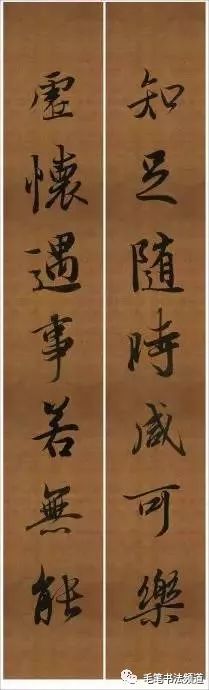 知足随時咸可樂
虛懷遇事若無能
毛笔书法频道